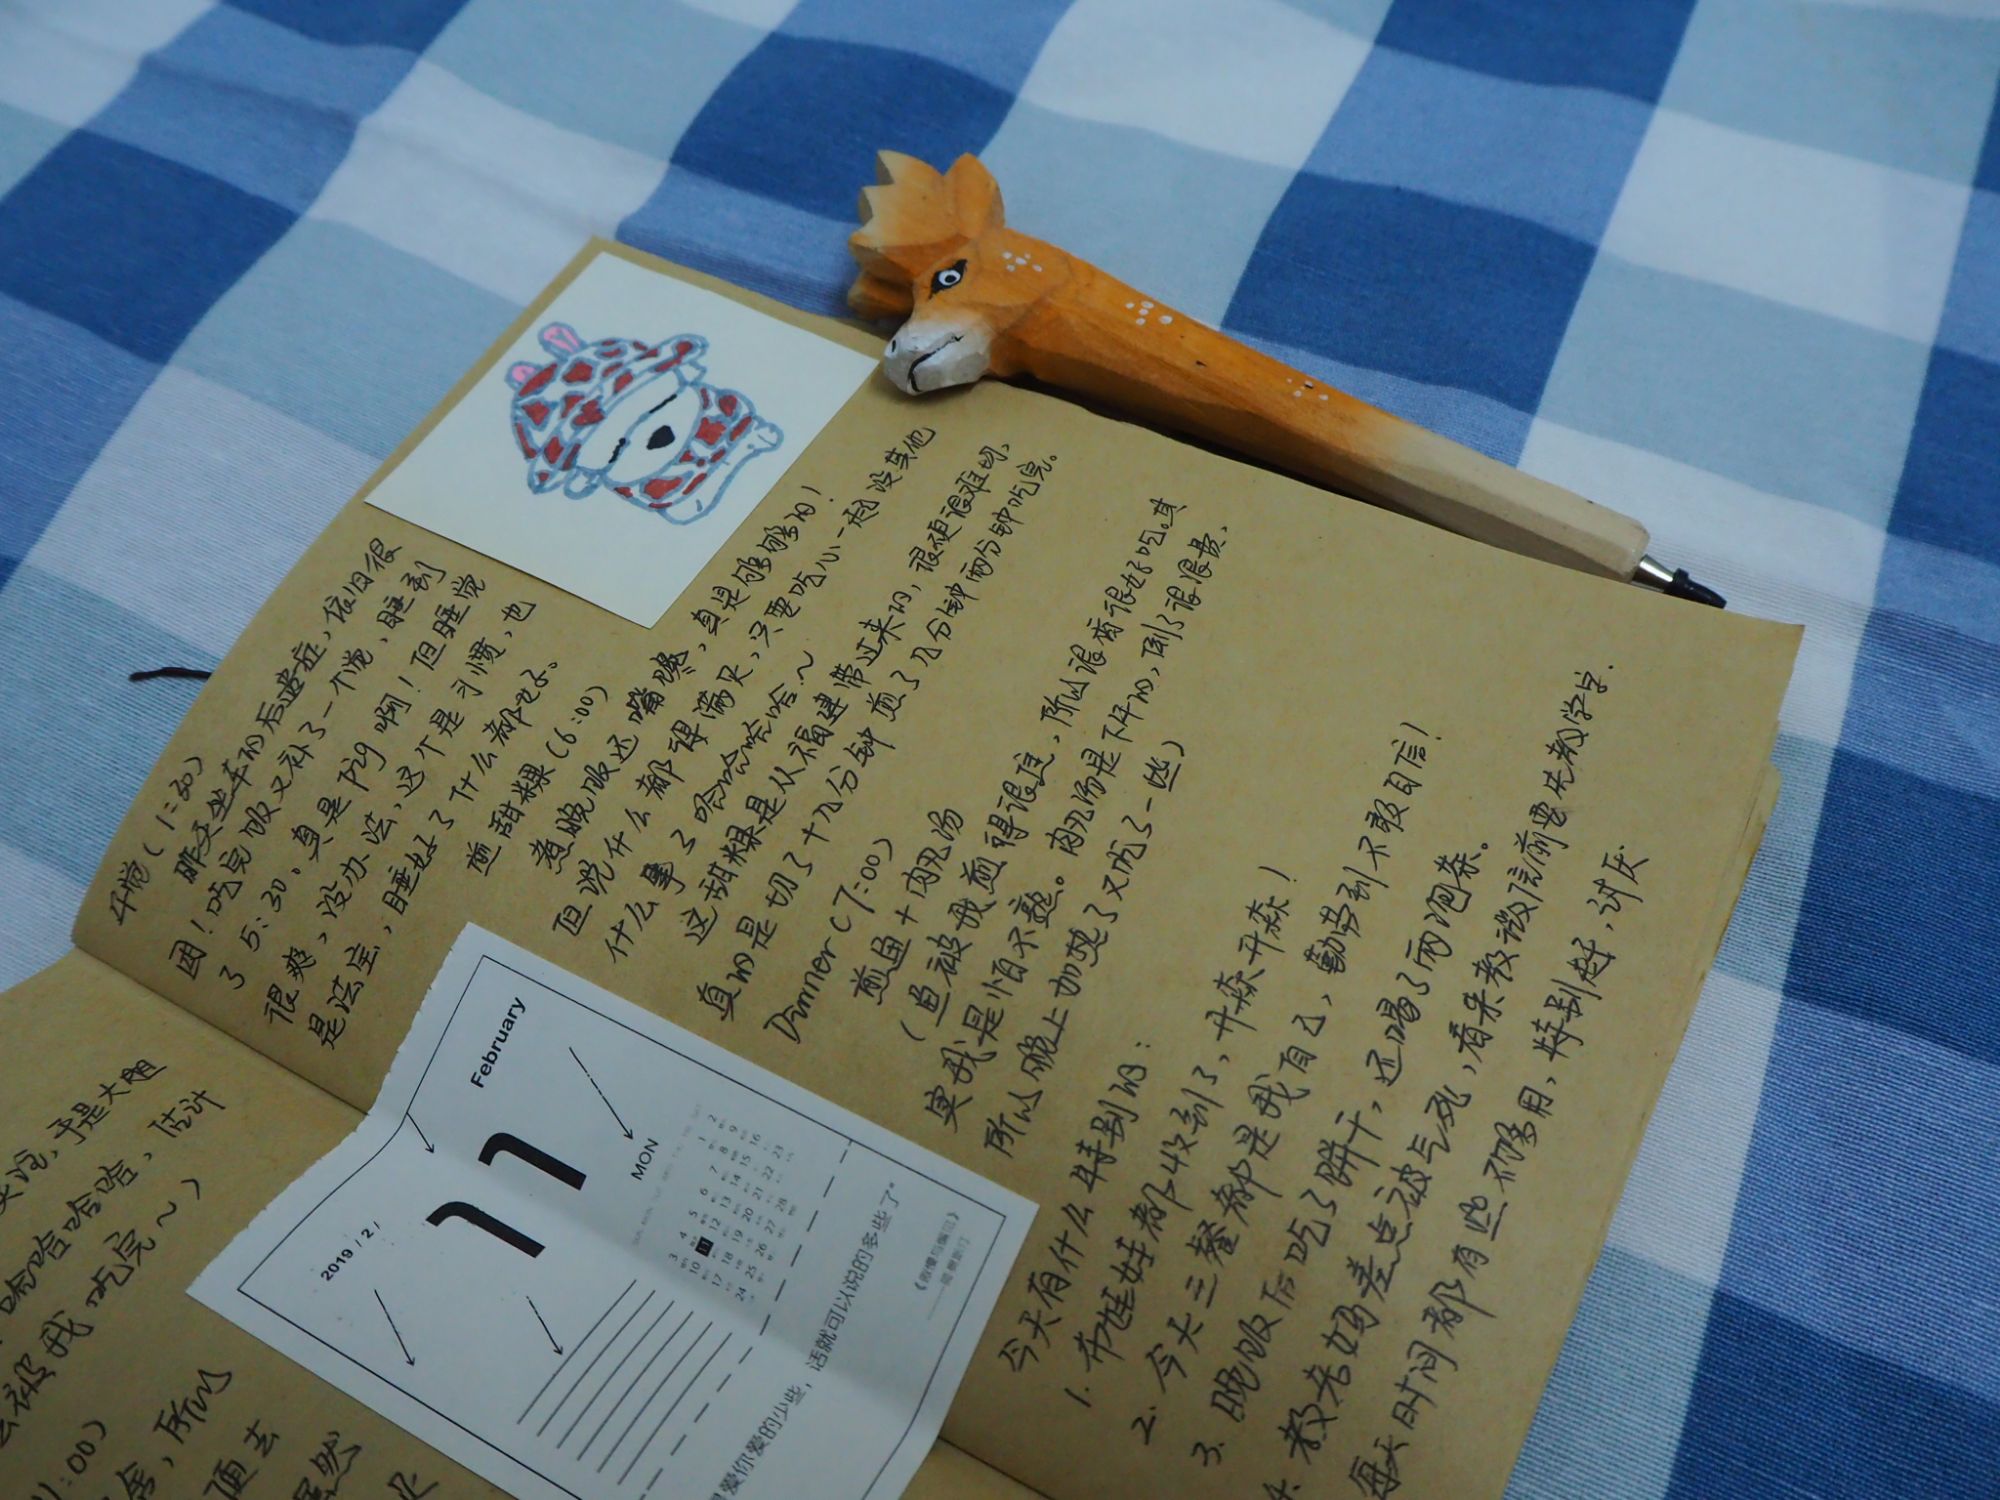 午觉(1:30)
昨天坐车的后遗症,依旧很
困!吃完饭又补了一个觉,睡到
了5:30。真是pig啊!但睡觉
很爽,没办法,这个是习惯,也
是法宝,睡好了什么都好。
煎甜粿(6:00)
煮晚饭还嘴馋,真是够够的!
但说什么都得满足,只要吃小一剂没其他
什么事了哈哈哈哈~
这甜粿是从福建带过来的,很硬很难切,
真的是切了十几分钟煎了几分钟两分钟吃完。
Dinner(7:00)
煎鱼+肉丸汤
(鱼被我煎得很过,所以很腐很好吃。其
实我是怕不熟。肉丸汤是下午的,倒了很浪费,
所以晚上加热了又吃了一些)
今天有什么特别的:
1. 布娃娃都收到了,开森开森!
2. 今天三餐都是我自己,勤劳到不敢自信!
3. 晚饭后吃了饼干,还喝了两泡茶。
4. 教老妈差点被气死,看来教微信前要先教学字.
每天时间都有些不够用,特别好,讨厌
2019 / 2.
February
11
MON
1 2
3 4 5 6 7 8 9
10 11 12 13 14 15 16
17 18 19 20 21 22 23
24 25 26 27 28
爱你爱的少些,话就可以说的多些了”
《傲慢与偏见》
,于是大胆
哈哈哈哈,估计
被我吃完~)
1:00)
舍,所以
面去
虽然